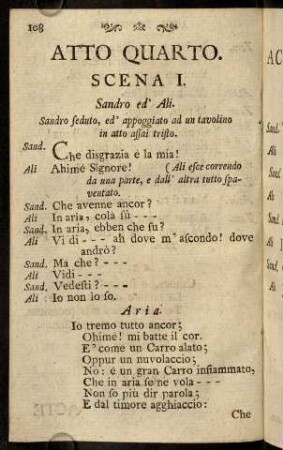 108
ATTO QUARTO.
SCENA I.
Sandro ed' Ali.
Sandro seduto, ed' appoggiato ad un tavolino
in atto assai tristo.
Sand. Che disgrazia è la mia!
Ali Ahimé Signore! ( Ali esce correndo
da una parte, e dall' altra tutto spa-
ventato.
Sand. Che avenne ancor?
Ali In aria, colà sù - - -
Sand. In aria, ebben che fu?
Ali Vi di - - - ah dove m' ascondo! dove
andrò?
Sand. Ma che? - - -
Ali Vidi - - -
Sand. Vedesti? - - -
Ali : Io non lo so.
Aria.
Io tremo tutto ancor;
Ohimé! mi batte il cor.
E' come un Carro alato;
Oppur un nuvolaccio;
No: è un gran Carro infiammato,
Che in aria se ne vola - - -
Non so più dir parola;
E dal timore agghiaccio:
Che